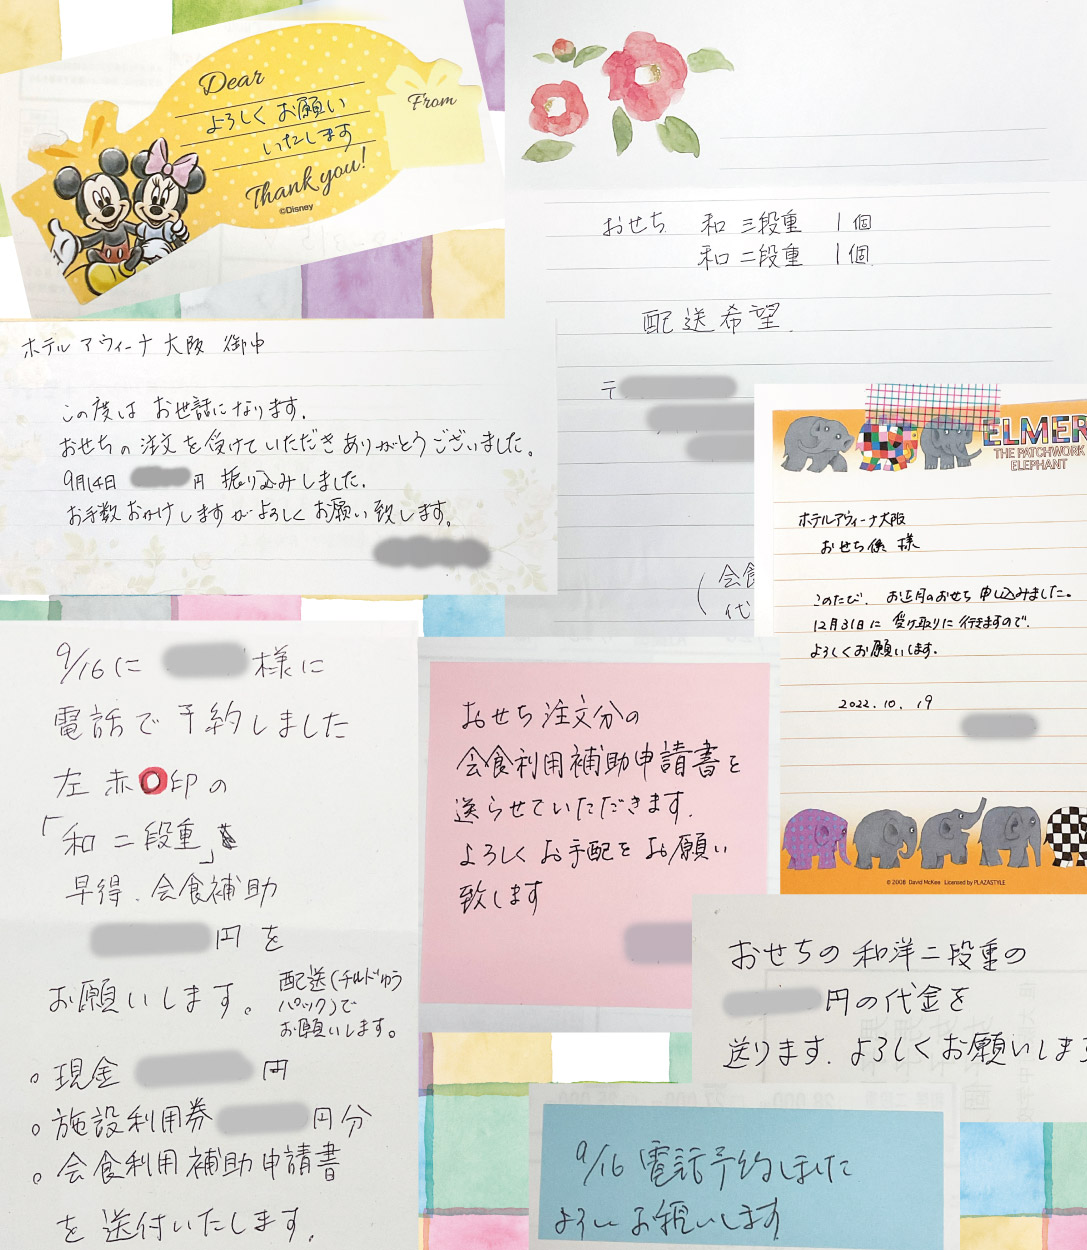 Dear
よろしく お願い
いたします
Thank you!
©Disney
From
おせち 和 三段重 1個
和 二段重 1個
配送希望
〒
(会食
代
ホテル アウィーナ 大阪 御中
この度は お世話になります.
おせちの注文を受けていただきありがとうございました。
9月14日 円 振り込みしました.
お手数おかけしますがよろしくお願い致します。
ELMER
THE PATCHWORK
ELEPHANT
ホテルアウィーナ大阪
おせち係 様
このたび、お正月のおせち 申し込みました。
12月31日に 受け取りに行きますので、
よろしくお願いします.
2022.10.19
© 2008 David McKee Licensed by PLAZASTYLE
9/16に 様に
電話で予約しました
左 赤〇印の
「和 二段重」
早得、会食補助
円を
お願いします。
配送(チルドゆう
パック)で
お願いします。
。現金 円
。施設利用券 円分
。会食利用補助申請書
を送付いたします.
おせち注文分の
会食利用補助申請書を
送らせていただきます.
よろしくお手配をお願い
致します
おせちの和洋二段重の
円の代金を
送ります. よろしくお願いしま
9/16 電話予約しました
よろしくお願いします